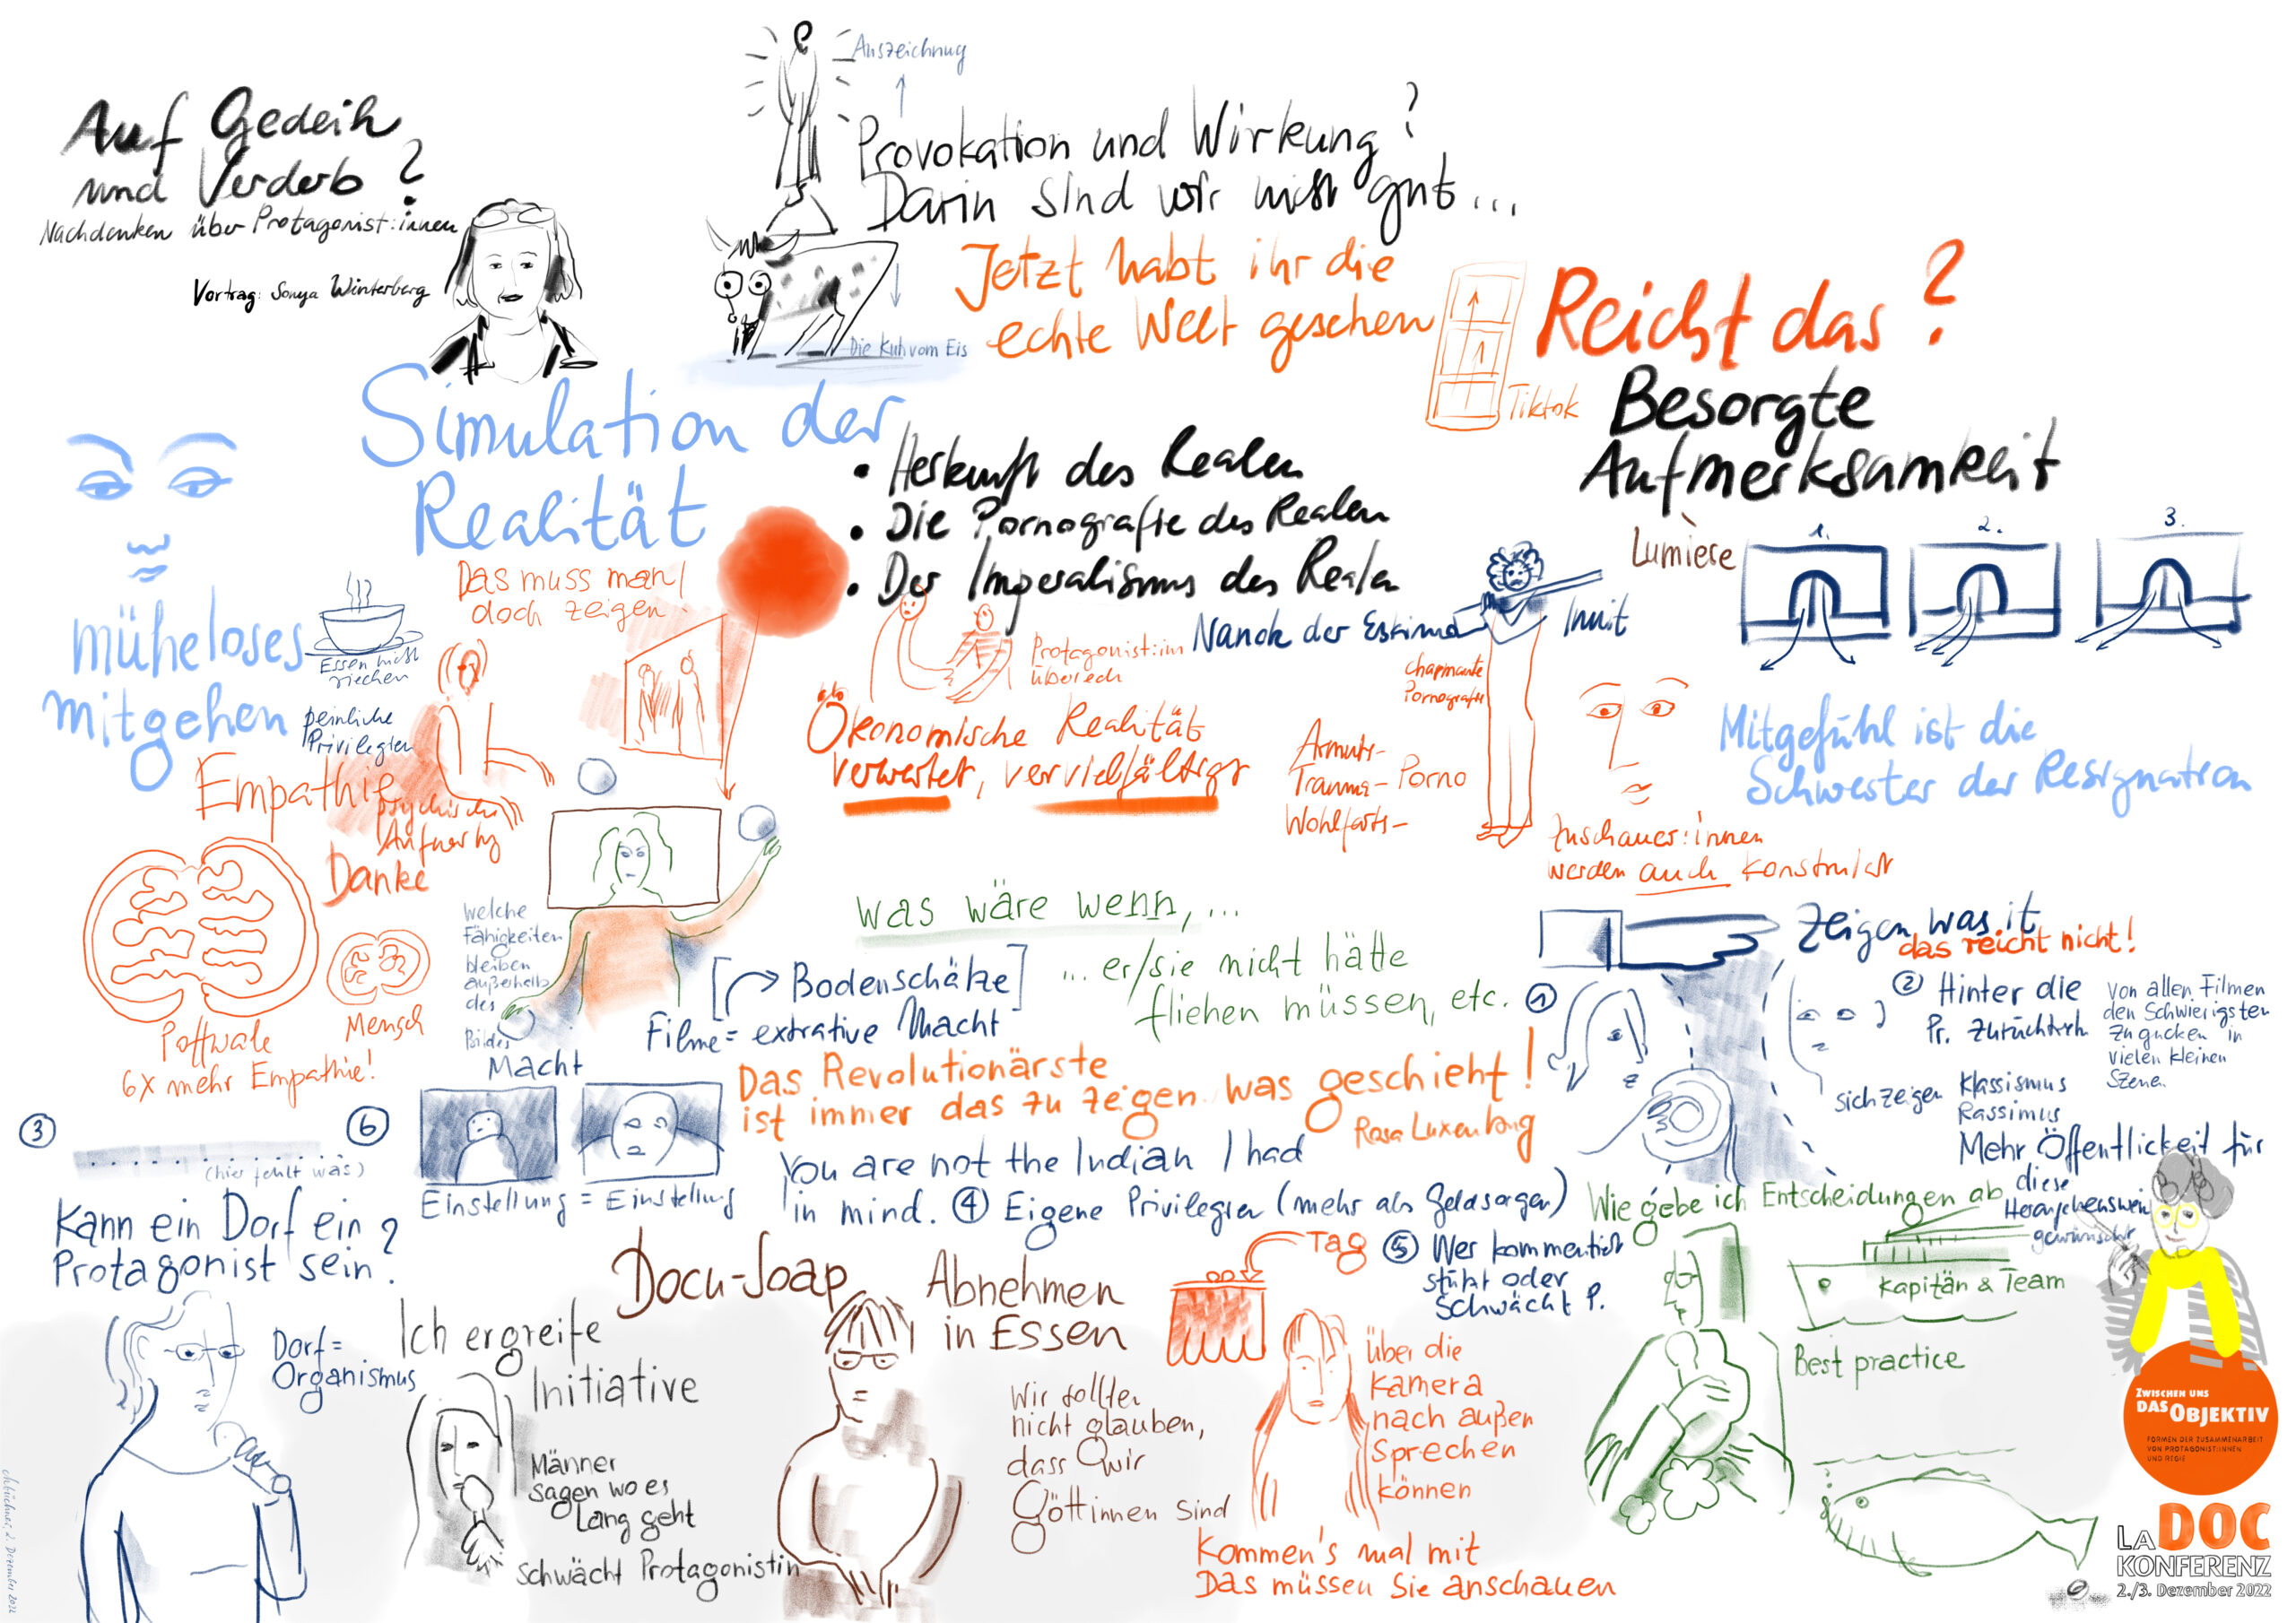 Auf Gedeih
und Verderb?
Nachdenken über Protagonist:innen
Vortrag: Sonya Winterberg
Auszeichnug
Provokation und Wirkung?
Darin sind wir nicht gut...
Die Kuh vom Eis
Jetzt habt ihr die
echte Welt gesehen
Tiktok
Reicht das?
Besorgte
Aufmerksamkeit
Simulation der
Realität
• Herkunft des Realen
• Die Pornografie des Realen
• Der Imperalismus des Realen
müheloses
mitgehen
Essen nicht
riechen
peinliche
Privilegien
Das muss man
doch zeigen
Protagonist:in
Nanok der Eskimo
Inuit
Lumière
1.
2.
3.
Ökonomische Realität
verwertet, vervielfältigt
charmante
Pornografie
Armuts-
Trauma- Porno
Wohlfarts-
Mitgefühl ist die
Schwester der Resignation
Zuschauer:innen
werden auch konstruiert
Empathie
psychische
Danke
Pottwale
Mensch
6x mehr Empathie!
welche
Fähigkeiten
bleiben
außerhalb
des
Bildes
Macht
was wäre wenn, ...
... er/sie nicht hätte
fliehen müssen, etc.
[→ Bodenschätze]
Filme = extrative Macht
Zeigen was it
das reicht nicht!
①
② Hinter die
Pr. zurücktreten
Von allen Filmen
den Schwierigsten
zu gucken in
vielen kleinen
Szenen
sich zeigen
Klassismus
Rassimus
Mehr Öffentlickeit für
diese
gewünscht
Das Revolutionärste
ist immer das zu zeigen was geschieht!
Rosa Luxemburg
You are not the Indian I had
in mind.
④ Eigene Privilegien (mehr als Geldsorgen)
③
(hier fehlt was)
Kann ein Dorf ein
Protagonist sein?
⑥
Einstellung = Einstellung
Dorf =
Organismus
Ich ergreife
Initiative
Männer
sagen wo es
Lang geht
schwächt Protagonistin
Docu-Soap
Abnehmen
in Essen
Wir sollten
nicht glauben,
dass wir
Göttinnen sind
Tag
⑤ Wer kommentiert
stützt oder
schwächt P.
über die
Kamera
nach außen
sprechen
können
Kommen's mal mit
Das müssen Sie anschauen
Wie gebe ich Entscheidungen ab
Kapitän & Team
Best practice
Zwischen uns
das Objektiv
Formen der Zusammenarbeit
von Protagonist:innen
und Regie
LaDOC
KONFERENZ
2./3. Dezember 2022